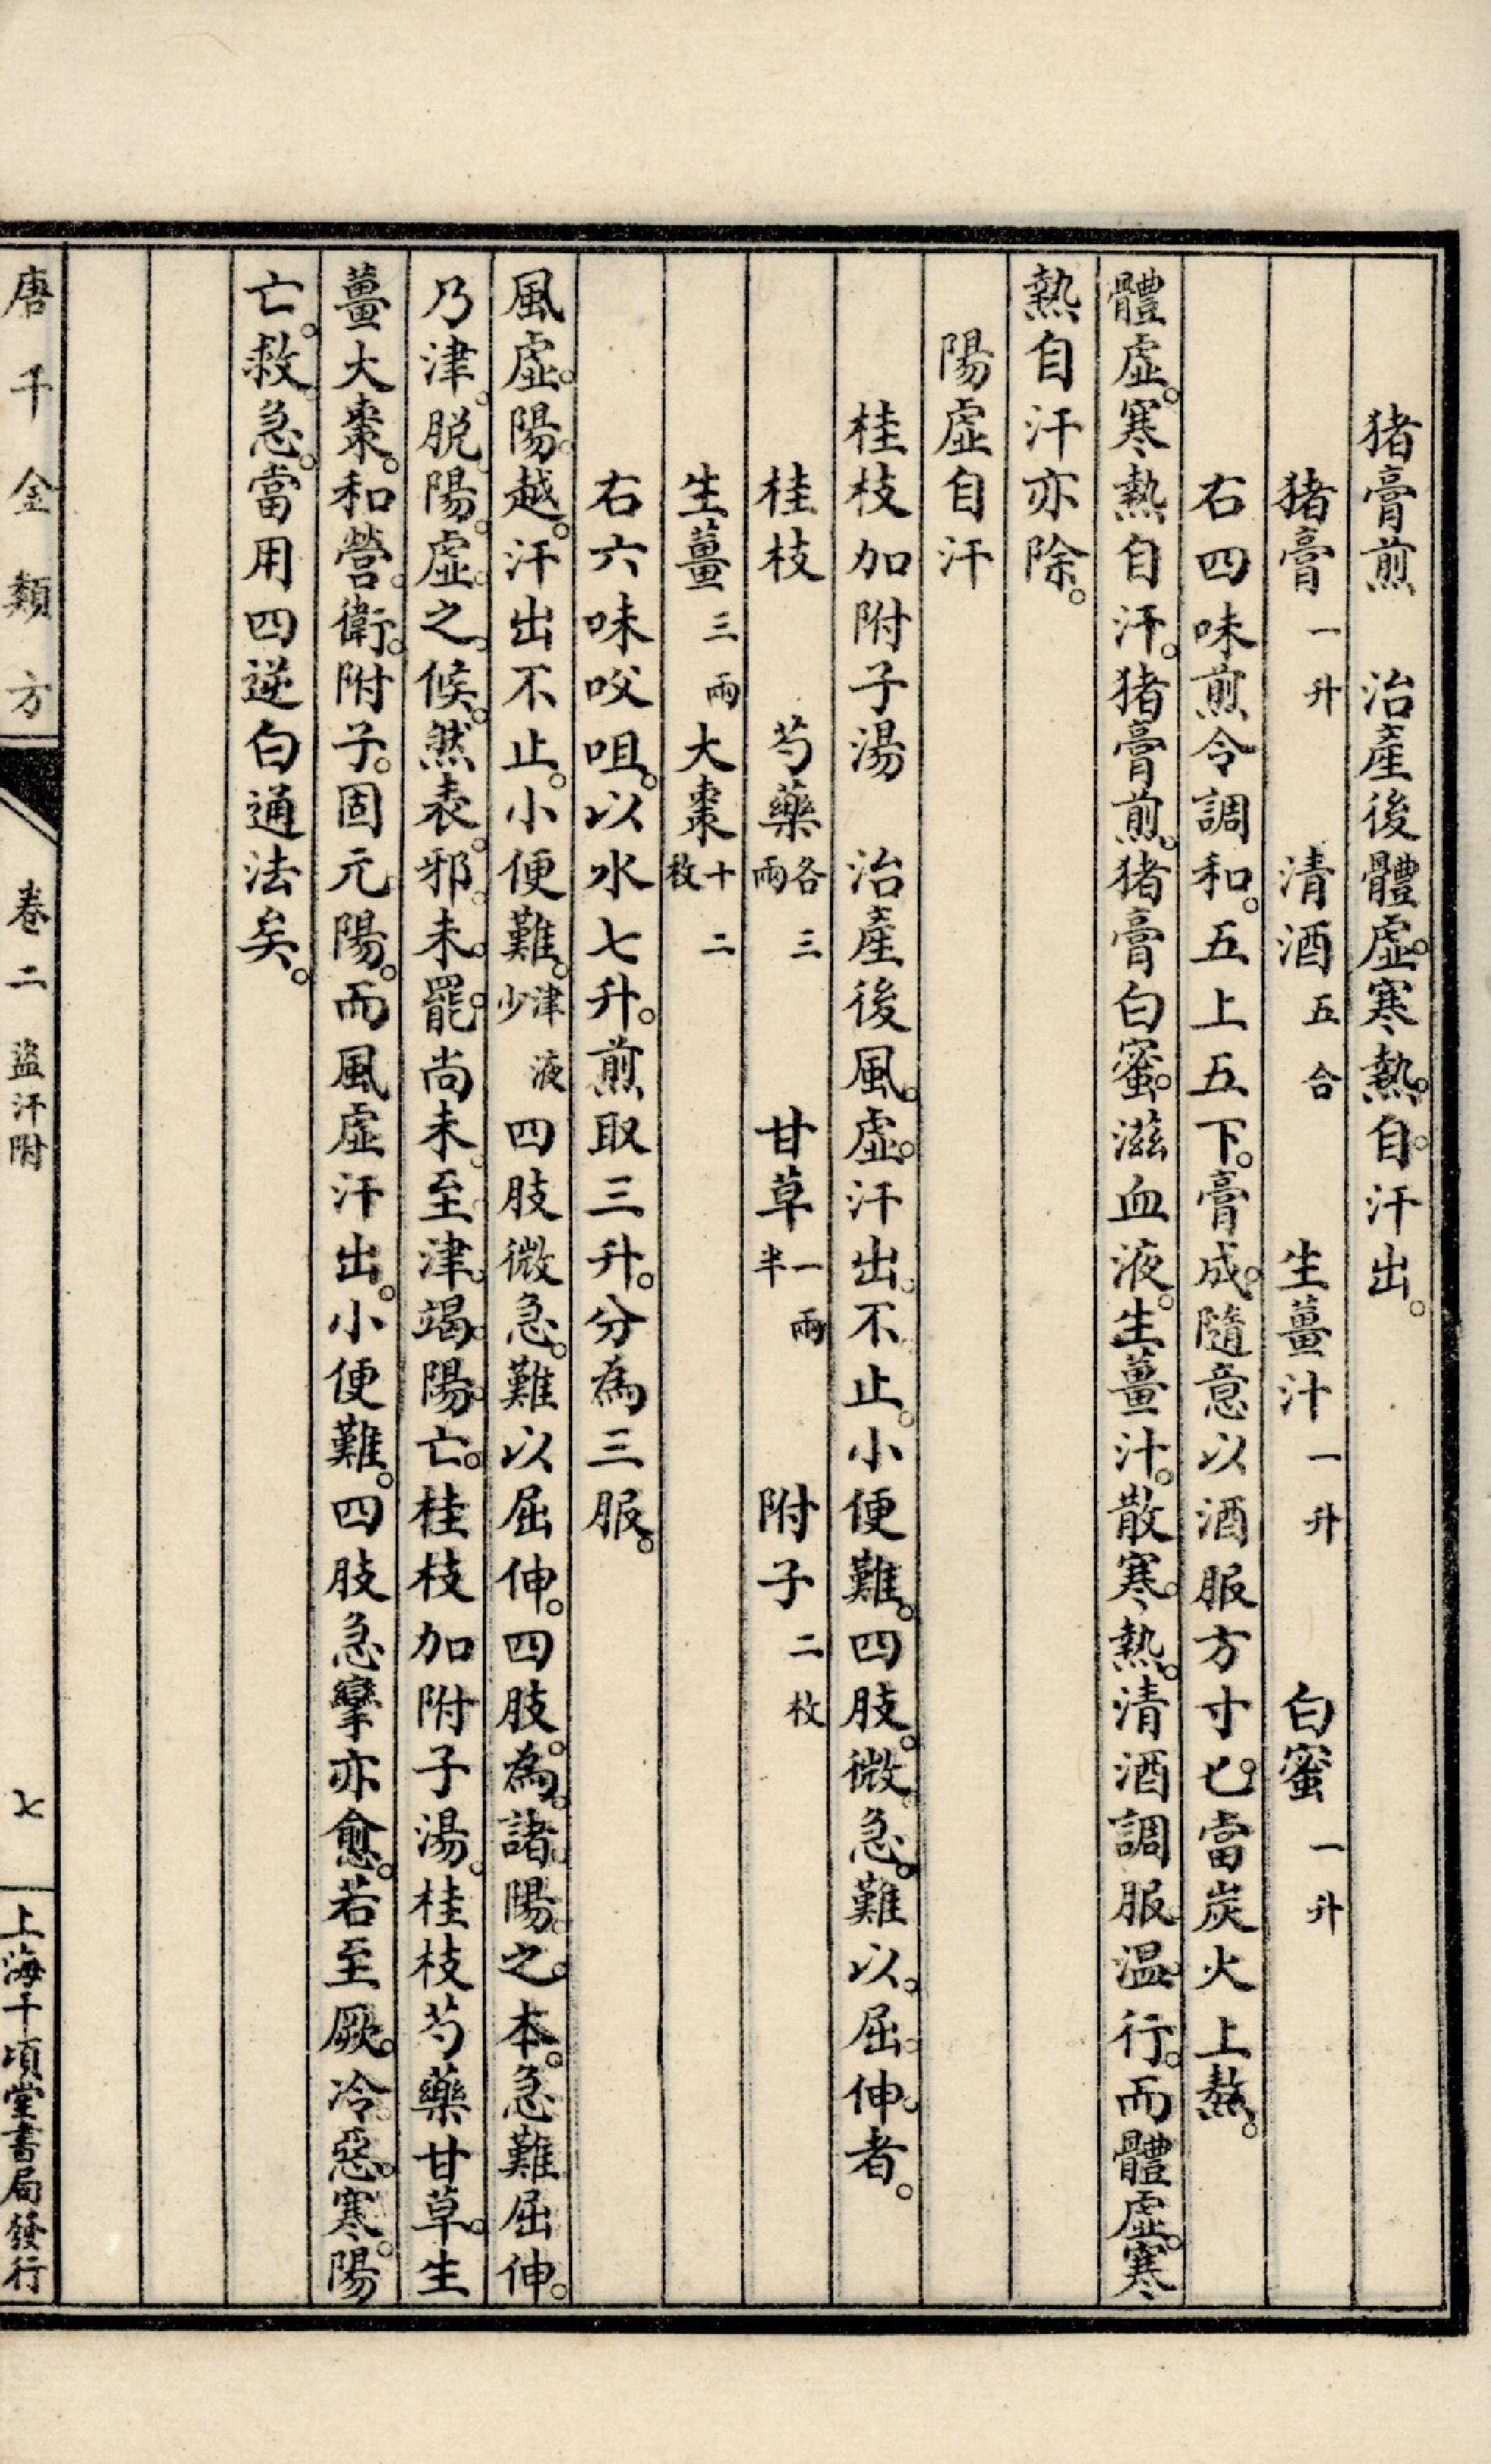 猪膏煎　治產後體虛。寒熱。自汗出。
猪膏一升　清酒五合　生薑汁一升　白蜜一升
右四味煎令調和。五上五下。膏成。隨意以酒服方寸匕。當炭火上熬。
體虛。寒熱自汗。猪膏煎。猪膏白蜜。滋血液。生薑汁。散寒。熱。清酒調服温行。而體虛。寒
熱自汗亦除。
陽虛自汗
桂枝加附子湯　治產後風。虛。汗出。不止。小便難。四肢。微。急。難以。屈。伸。者。
桂枝　芍藥各三兩　甘草一兩半　附子二枚
生薑三兩　大棗十二枚
右六味㕮咀。以水七升。煎取三升。分為三服。
風虛。陽。越。汗出不止。小便難。津液少四肢微急。難以屈伸。四肢。為。諸。陽。之。本。急難屈伸。
乃津。脱。陽。虛。之。候。然表。邪。未。罷。尚未。至。津。竭。陽。亡。桂枝加附子湯。桂枝芍藥甘草。生
薑大棗。和營。衛。附子。固元陽。而風虛汗出。小便難。四肢急攣亦愈。若至厥。冷。惡。寒。陽
亡。救。急。當用四逆白通法矣。
唐千金類方　卷二　盜汗附　七　上海千頃堂書局發行